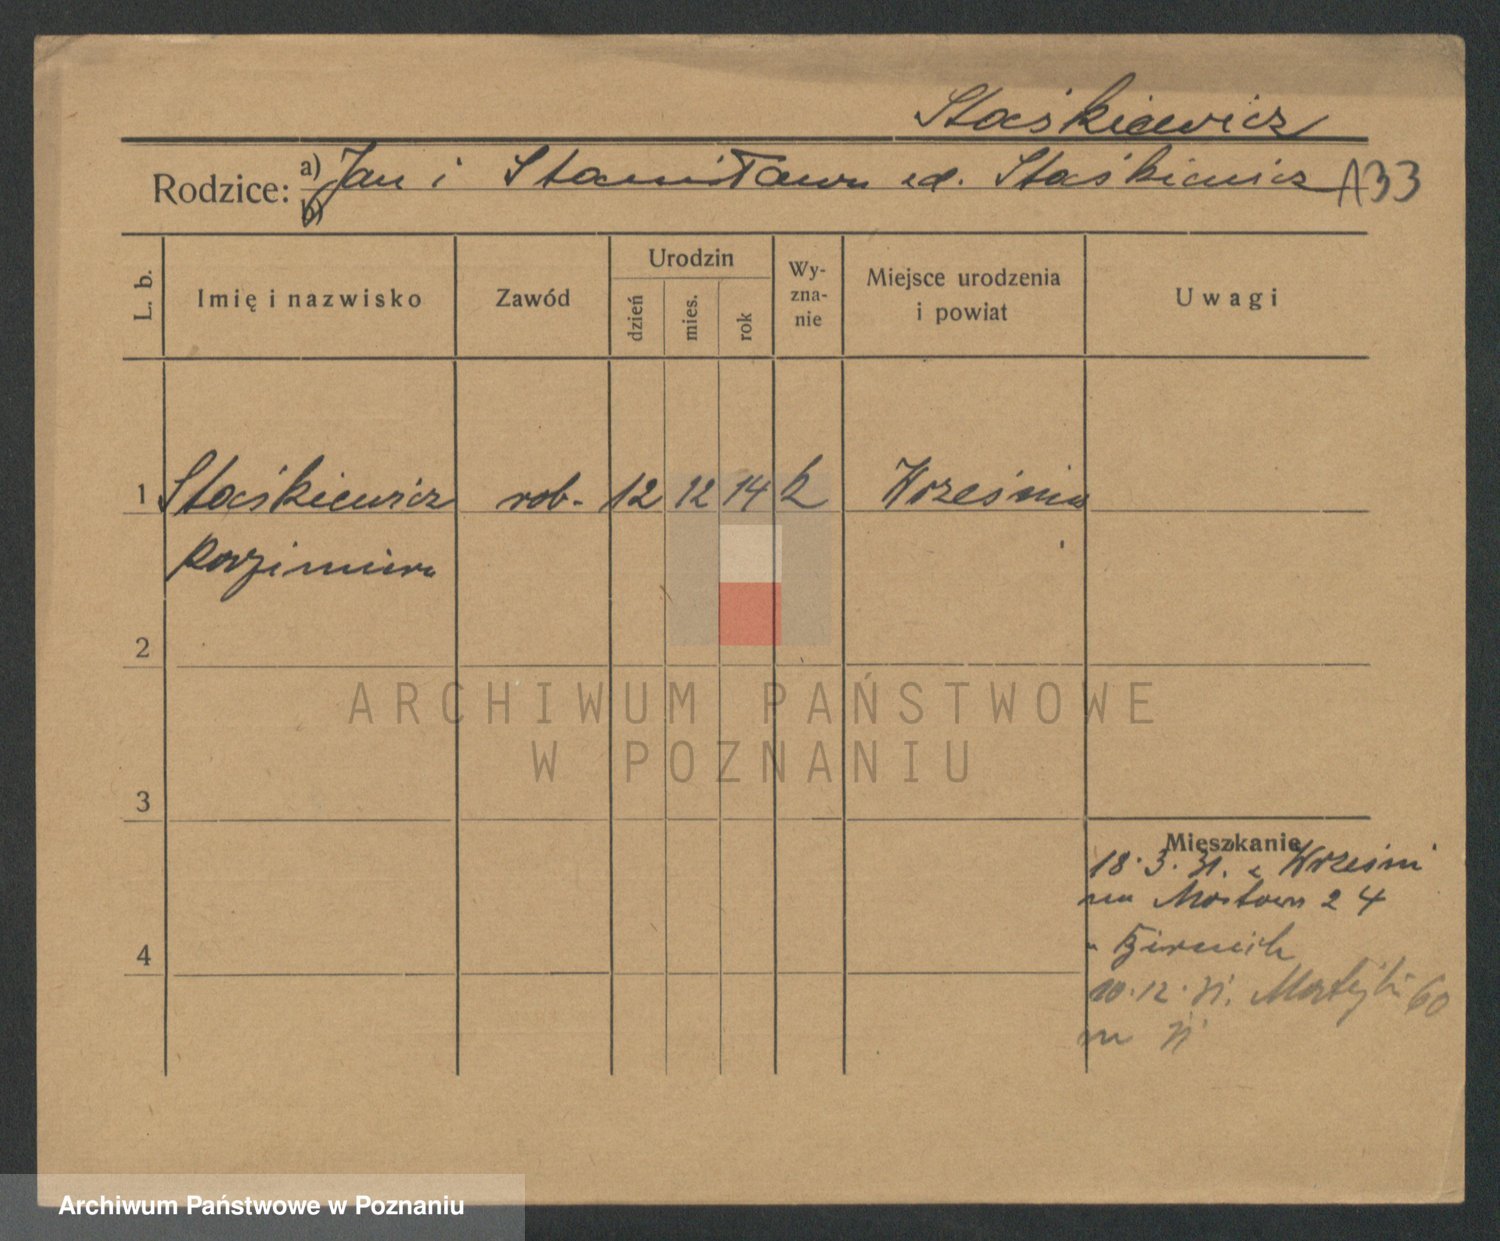 Staśkiewicz
Rodzice: a) Jan i Stanisława zd. Staśkiewicz A33
b)
L. b. Imię i nazwisko Zawód Urodzin dzień mies. rok Wy-zna-nie Miejsce urodzenia i powiat Uwagi
1 Staśkiewicz rob. 12 12 14 k Września
Kazimiera
2
3
4
Mieszkanie
18.3.31. z Wrześni
na Mostowa 24
10.12.31. Matejki 60
m
ARCHIWUM PAŃSTWOWE
W POZNANIU
Archiwum Państwowe w Poznaniu